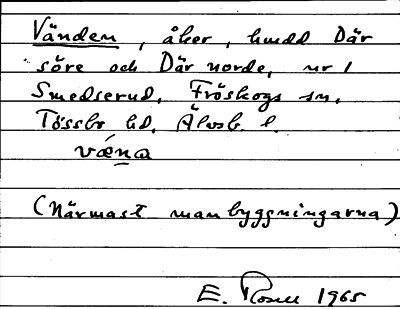 Vänden, åker, kudd Där
söre och Där norde, nr 1
Smedserud, Fröskogs sn,
Tössbo hd, Älvsb. l.
væna
(Närmast manbyggningarna)
E. Rosell 1965